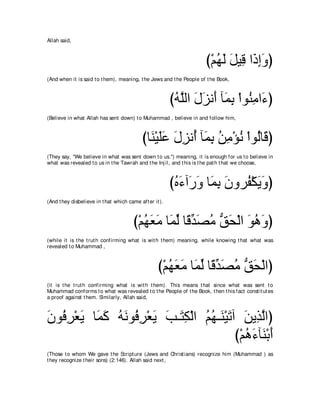 Allah said,
(وَإِذَا قِيلَ لَهُمْ)
(And when it is said to them), meaning, the Jews and the People of the Book,
(ءَامِنُواْ بِمَآ أَنزَلَ اللَّهُ)
(Believe in what Allah has sent down) to Muhammad , believe in and follow him,
(قَالُواْ نُؤْمِنُ بِمَآ أُنزِلَ عَلَيْنَا)
(They say, "We believe in what was sent down to us.") meaning, it is enough for us to believe in
what was revealed to us in the Tawrah and the Injil, and this is the path that we choose,
(وَيَكْفُرونَ بِمَا وَرَآءَهُ)
(And they disbelieve in that which came after it).
(وَهُوَ الْحَقُّ مُصَدِّقًا لِّمَا مَعَهُمْ)
(while it is the truth confirming what is with them) meaning, while knowing that what was
revealed to Muhammad ,
(الْحَقُّ مُصَدِّقًا لِّمَا مَعَهُمْ)
(it is the truth confirming what is with them). This means that since what was sent to
Muhammad conforms to what was revealed to the People of the Book, then this fact constitutes
a proof against them. Similarly, Allah said,
(الَّذِينَ آتَيْنَـهُمُ الْكِتَـبَ يَعْرِفُونَهُ كَمَا يَعْرِفُونَ
أَبْنَآءَهُمْ)
(Those to whom We gave the Scripture (Jews and Christians) recognize him (Muhammad ) as
they recognize their sons) (2:146). Allah said next,